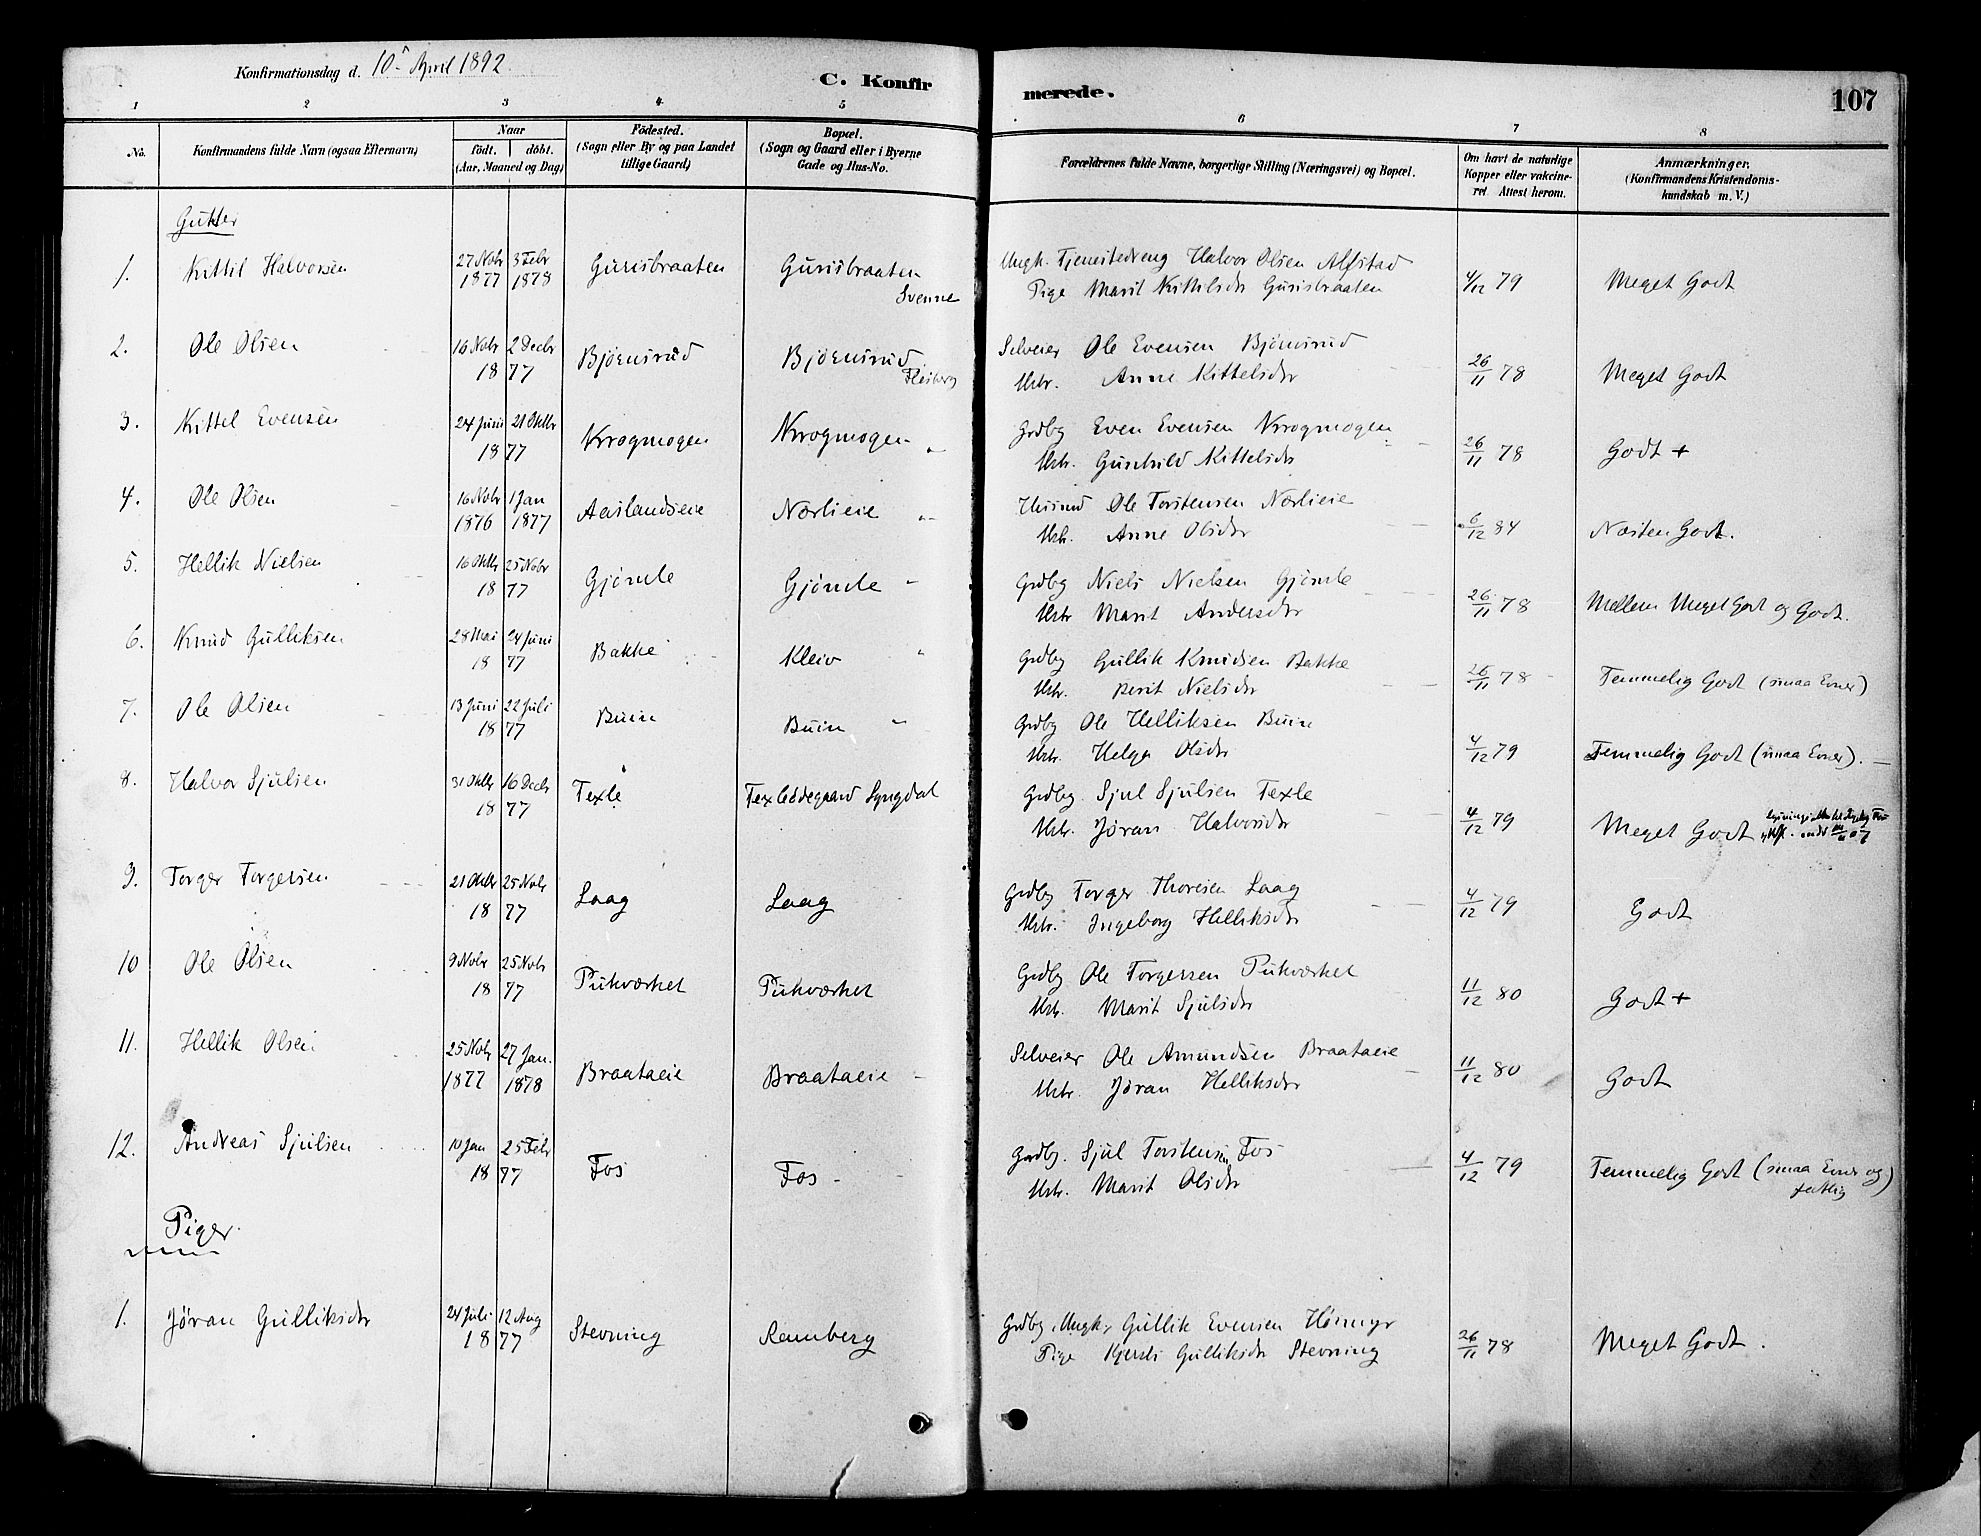 Konfirmationsdag d. 10 April 1892.
C. Konfir
merede.
107
1 2 3 4 5 6 7 8
No.
Konfirmandens fulde Navn (ogsaa Efternavn)
Naar
födt. döbt.
(Aar, Maaned og Dag)
Födested.
(Sogn eller By og paa Landet
tillige Gaard)
Bopæl.
(Sogn og Gaard eller i Byerne
Gade og Hus-No.
Forældrenes fulde Navne, borgerlige Stilling (Næringsvei) og Bopæl.
Om havt de naturlige
Kopper eller vakcine-
ret Attest herom.
Anmærkninger.
(Konfirmandens Kristendoms-
kundskab m. V.)
Gutter
1. Kittil Halvorsen 27 Nobr 1877 3 Febr 1878 Gurisbraaten Gurisbraaten Svenne
Ungk. Tjenestedreng Halvor Olsen Alfstad
Pige Marit Kittelsdtr Gurisbraaten
4/12 79 Meget Godt
2. Ole Olsen 16 Nobr 2 Decbr 1877 Bjørnsrud Bjørnsrud Flesberg
Selveier Ole Evensen Bjørnsrud
Hstr. Anne Kittelsdtr
26/11 78 Meget Godt
3. Kittel Evensen 24 Juni 21 Oktbr 1877 Krogmogen Krogmogen "
Grdbg Even Evensen Krogmogen
Hstr. Gunhild Kittelsdtr
26/11 78 Godt +
4. Ole Olsen 16 Nobr 1876 1 Jan 1877 Aaslandseie Nørlieie "
Husmd Ole Torstensen Nørlieie
Hstr. Anne Olsdtr
6/12 84 Næsten Godt.
5. Hellik Nielsen 16 Oktbr 25 Nobr 1877 Gjømle Gjømle "
Grdbg Niels Nielsen Gjømle
Hstr Marit Andersdtr
26/11 78 Mellem Meget Godt og Godt.
6. Knud Gulliksen 28 Mai 24 Juni 1877 Bakke Kleiv "
Grdbg Gullik Knudsen Bakke
Hstr. Berit Nielsdtr
26/11 78 Temmelig Godt (smaa Evner)
7. Ole Olsen 13 Juni 22 Juli 1877 Buin Buin "
Grdbg Ole Helliksen Buin
Hstr. Helga Olsdtr
4/12 79 Temmelig Godt (smaa Evner).
8. Halvor Sjulsen 31 Oktbr 16 Decbr 1877 Texle Texleødegaard Lyngdal
Grdbg. Sjul Sjulsen Texle
Hstr. Jøran Halvorsdtr
4/12 79 Meget Godt
9. Torger Torgersen 21 Oktbr 25 Nobr 1877 Laag Laag
Grdbg Torger Thoresen Laag
Hstr. Ingeborg Helliksdtr
4/12 79 Godt
10 Ole Olsen 9 Nobr 25 Nobr 1877 Pukværket Pukværket
Grdbg Ole Torgersen Pukværket
Hstr. Marit Sjulsdtr
11/12 80 Godt +
11. Hellik Olsen 25 Nobr 1877 27 Jan. 1878 Braataeie Braataeie
Selveier Ole Amundsen Braataeie
Hstr. Jøran Helliksdtr
11/12 80 Godt
12. Andreas Sjulsen 10 Jan 25 Febr 1877 Fos Fos
Grdbg. Sjul Torstensen Fos
Hstr. Marit Olsdtr
4/12 79 Temmelig Godt (smaa Evner og
Piger.
1. Jøran Gulliksdtr 24 Juli 12 Aug 1877 Stevning Ramberg
Grdbg. Ungk. Gullik Evensen Hømyr
Pige Kjersti Gulliksdtr Stevning
26/11 78 Meget Godt.